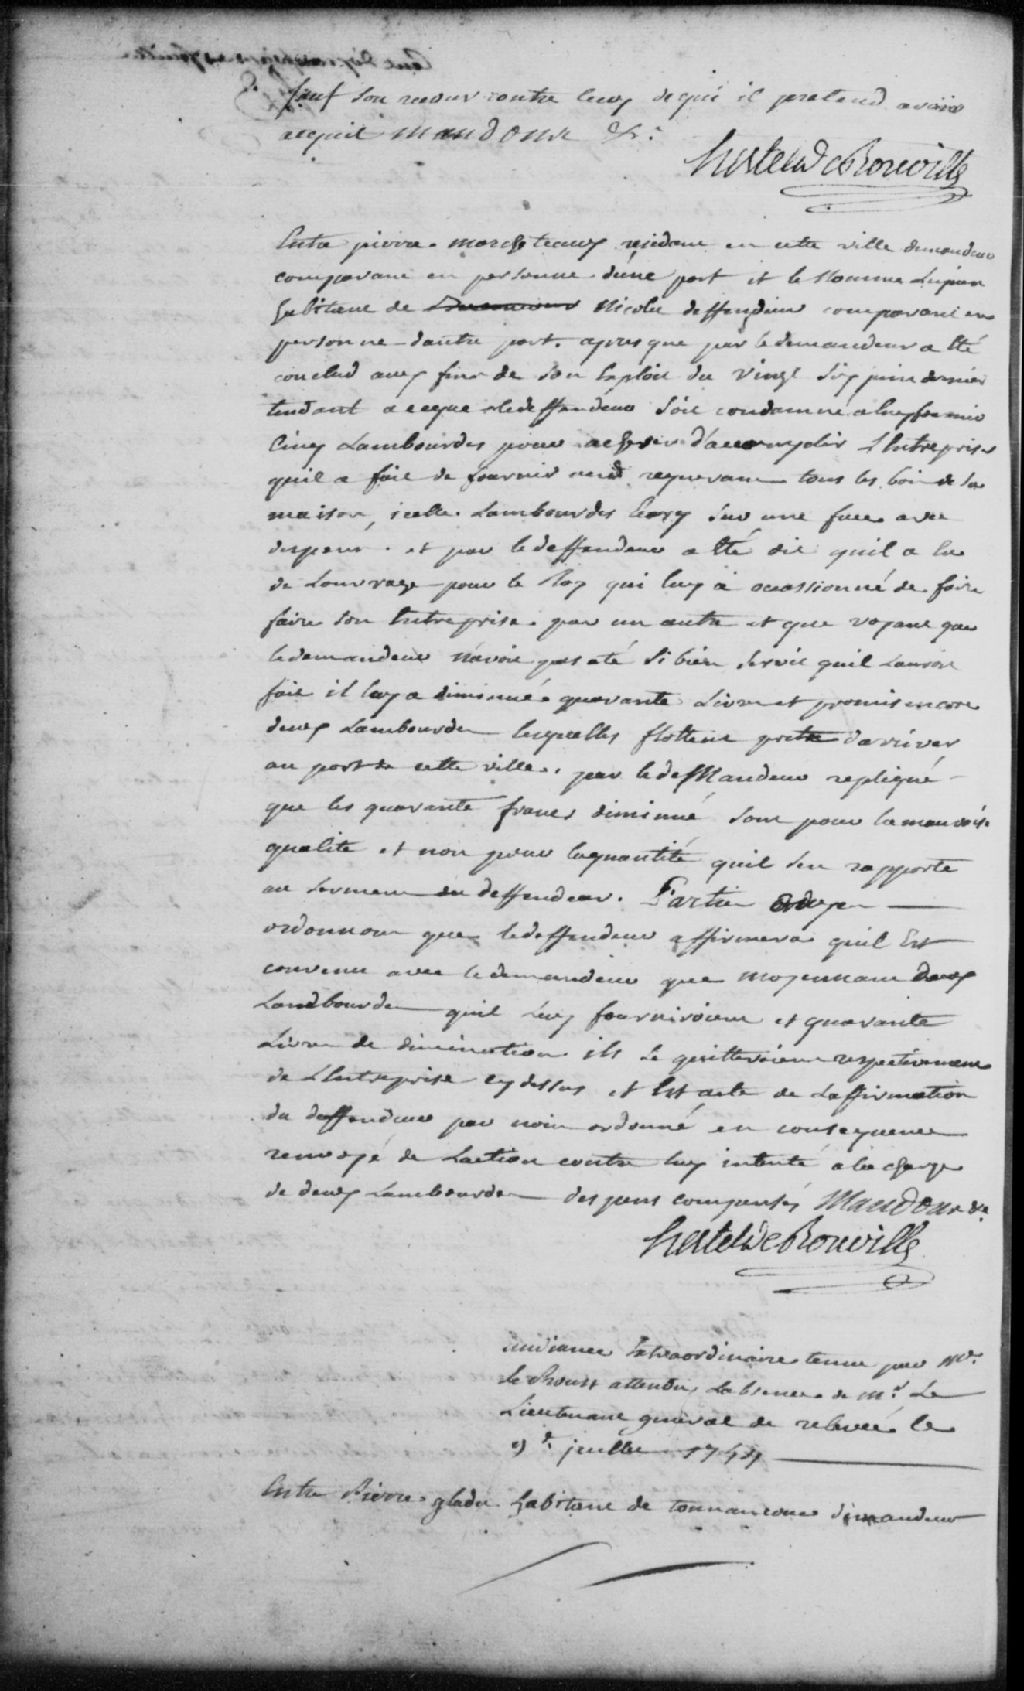 sauf son recour contre luy de qui il pretend avoir
acquit Mandons &c.
hertel de Rouville
Entre pierre marchteaux residant en cette ville demandeur
comparant en personne d'une part et le Nomme Lupien
habitant de Nicolet deffendeur comparant en
personne d'autre part. apres que par le demandeur a Eté
conclud aux fins de son Exploit du vingt six juin dernier
tendant a ce que le deffendeur soit condamné a luy fournir
Cinq Lambourdes pour achever d'accomplir L'Entreprise
quil a fait de fournir rendu tous les bois de sa
maison, icelle Lambourdes sur une face avec
depens. et par le deffendeur a Eté dit quil a Eu
de Louvrage pour le Roy qui luy a occassionné de faire
faire son Entreprise par un autre et que voyant que
le demandeur n'avoit pas eté si bien servit quil Lauroit
fait il luy a diminué quarante Livres et promis encore
deux Lambourdes lesquelles flottent prete d'arriver
au port de cette ville. par le demandeur repliqué
que les quarante francs diminué sont pour la mauvaise
qualité et non pour la quantité quil s'en rapporte
au serment du deffendeur. Parties ouyes
ordonnons que le deffendeur affirmera quil Est
convenu avec le demandeur que moyennant deux
Landbourdes quil luy fourniroient et quarante
Livres de diminution ils se quitteroient respectivement
de L'Entreprise cy dessus et Est acte de Laffirmation
du deffendeur par nous ordonné en consequence
renvoyé de Laction contre luy intenté a la charge
de deux Lambourdes despens compensés Mandons &c.
hertel de Rouville
audiance Extraordinaire tenue par Mr.
attendu Labsence de Mr. Le
Lieutenant general de relevée le
9e. juillet 1744
Entre Pierre gladu habitant de tonnancour demandeur